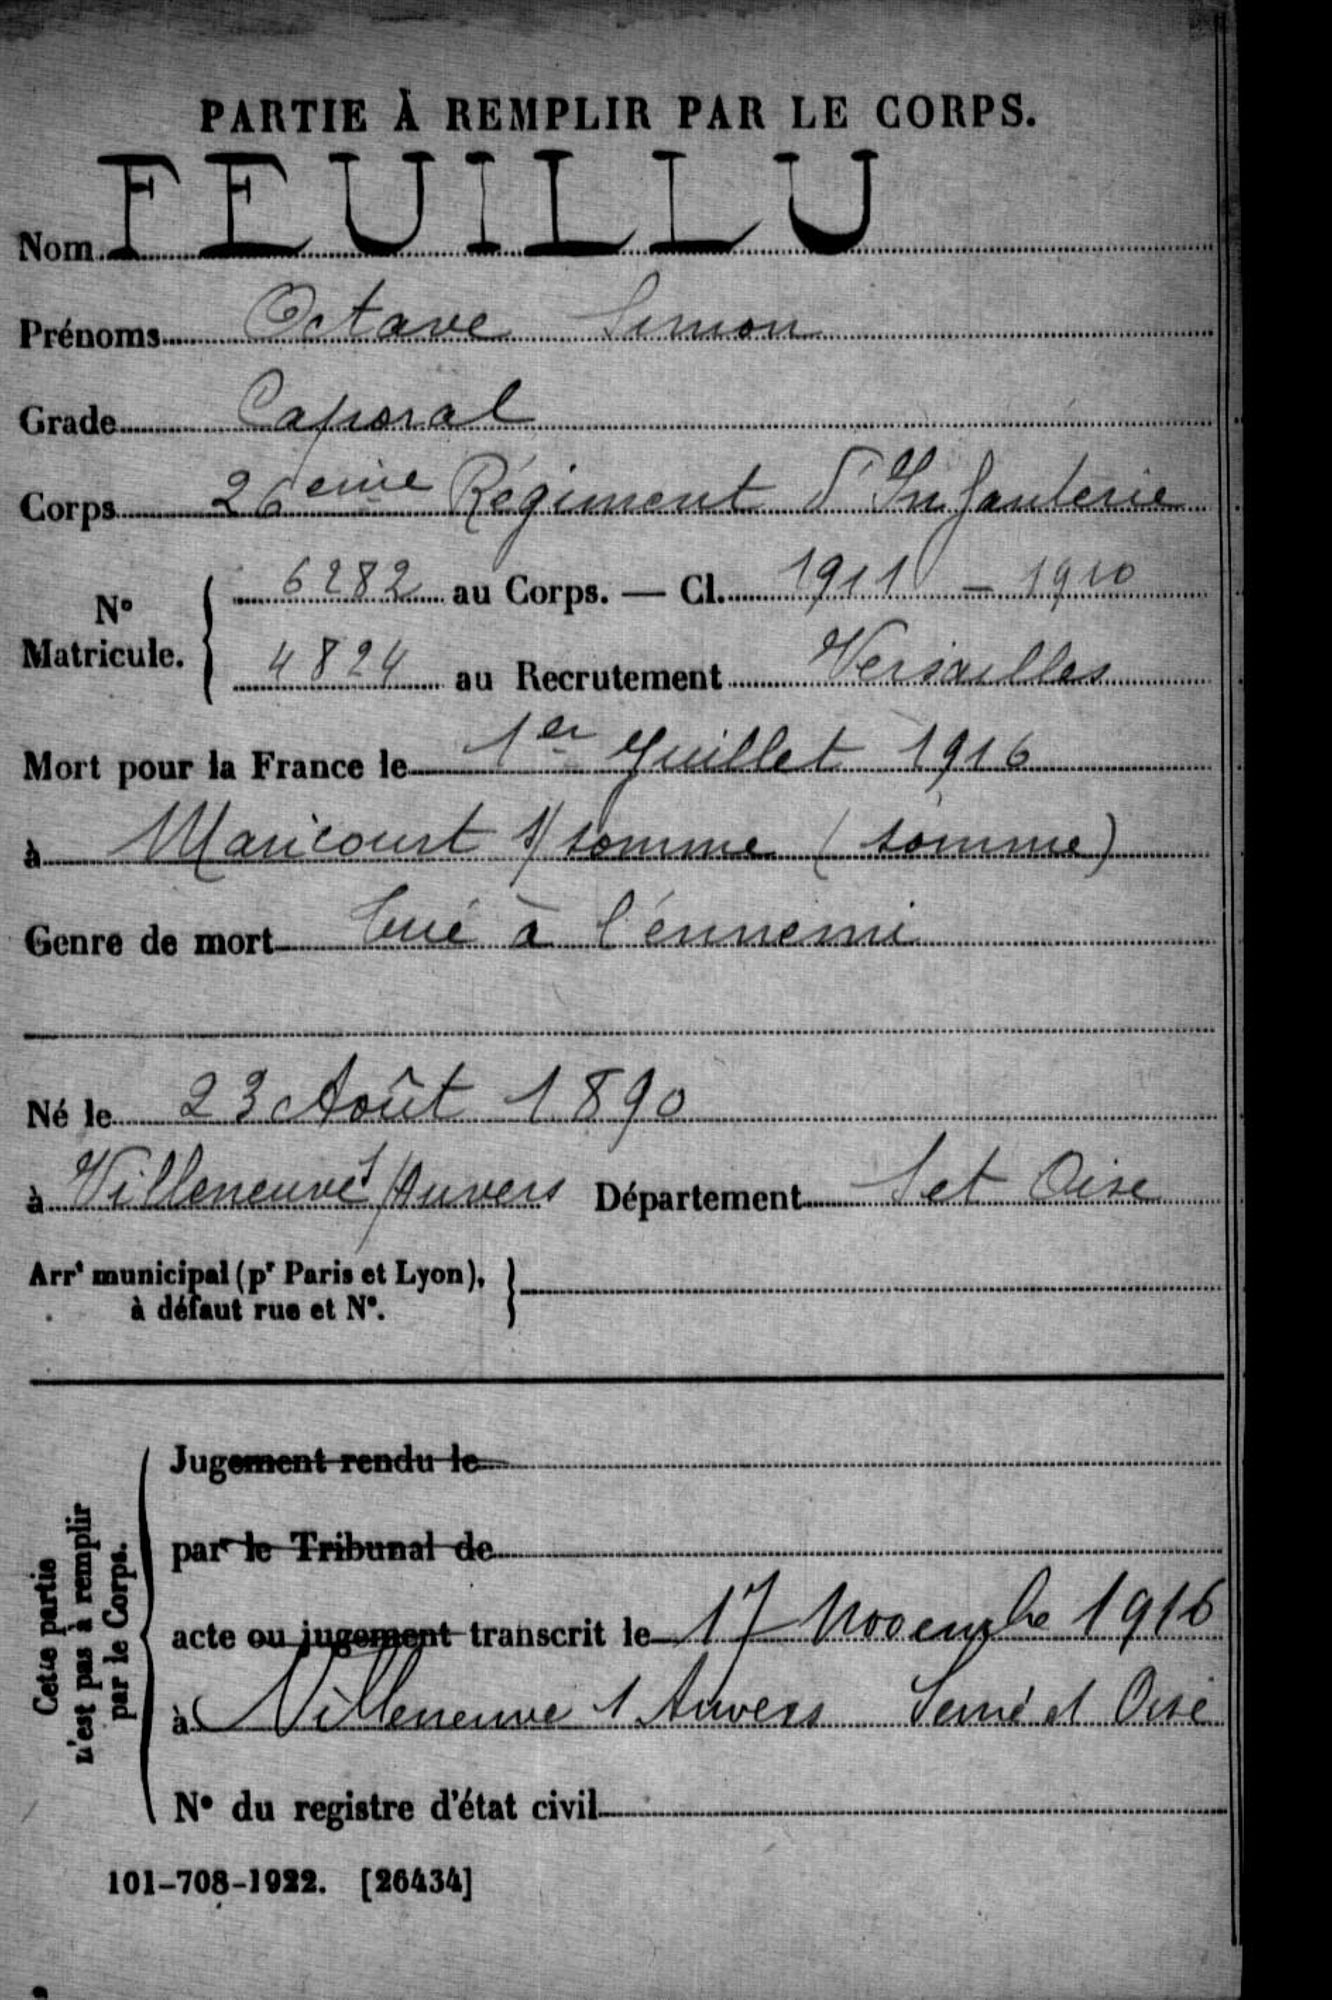 PARTIE À REMPLIR PAR LE CORPS.
Nom FEUILLU
Prénoms Octave Simon
Grade Caporal
Corps 26eme Régiment d'Infanterie
N° Matricule. 6282 au Corps. — Cl. 1911 - 1910
4824 au Recrutement Versailles
Mort pour la France le 1er Juillet 1916
à Maricourt s/ somme (somme)
Genre de mort tué à l'ennemi
Né le 23 Août 1890
à Villeneuve s/Auvers Département S et Oise
Arrt municipal (pr Paris et Lyon),
à défaut rue et N°.
Cette partie
n'est pas à remplir
par le Corps.
Jugement rendu le
par le Tribunal de
acte ou jugement transcrit le 17 Novembre 1916
à Villeneuve s Auvers Seine et Oise
N° du registre d'état civil
101-708-1922. [26434]